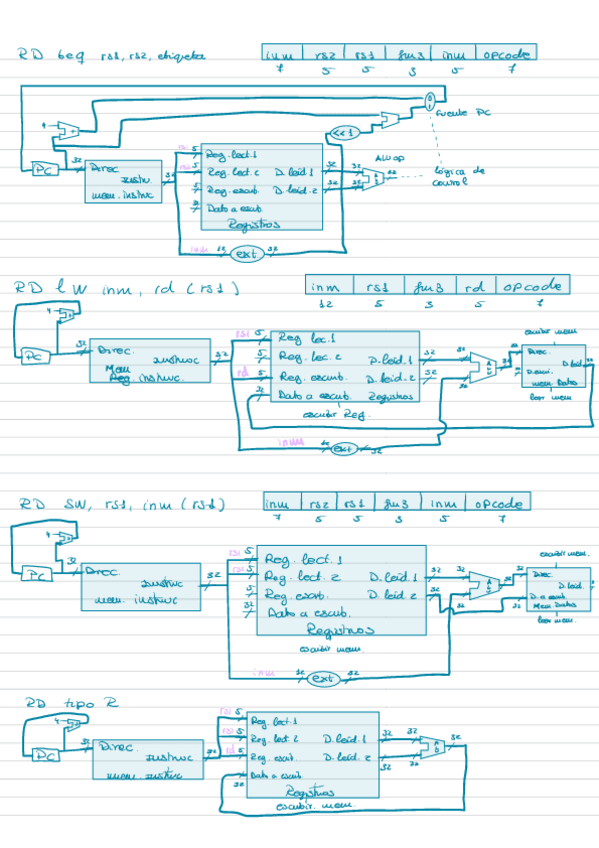 RD beq rs1, rs2, etiqueta
inm rs2 rs1 fun3 inm opcode
7 5 5 3 5 7
4 +
0 1
fuente PC
<<1
PC 32 Direc. instr. mem. instruc 32
rs1 5 Reg. lect. 1
rs2 5 Reg. lect 2 D. leid. 1 32 32 ALUop
5 Reg. escrib. D. leid. 2 32 32
Dato a escrib.
Registros
lógica de control
inm 12 ext 32
RD lw inm, rd (rs1)
inm rs1 fun3 rd opcode
12 5 3 5 7
4 +
PC 32 Direc. instruc Mem Reg. instruc. 32
rs1 5 Reg lec. 1
5 Reg. lec. 2 D. leid. 1 32 32
rd 5 Reg. escrib. D. leid. 2 32
32 Dato a escrib. Registros
escribir Reg.
escribir mem
Direc. D. leid
mem. Datos
leer mem
inm 12 ext 32
RD sw, rs1, inm (rs1)
inm rs2 rs1 fun3 inm opcode
7 5 5 3 5 7
4 +
PC 32 Direc. instruc mem. instruc 32
rs1 5 Reg. lect. 1
5 Reg. lect. 2 D. leid. 1 32 32
5 Reg. escrib. D. leid. 2 32
32 Dato a escrib.
Registros
escribir mem.
escribir mem.
32 Direc. D. leid.
32 D. a escrib.
Mem Datos
leer mem.
inm 12 ext 32
RD tipo R
4 +
PC 32 Direc. instruc mem. instruc
rs1 5 Reg. lect. 1
rs2 5 Reg. lect 2 D. leid. 1 32 32
rd 5 Reg. escrib. D. leid. 2 32 32 32
32 Dato a escrib
Registros
escribir. mem.